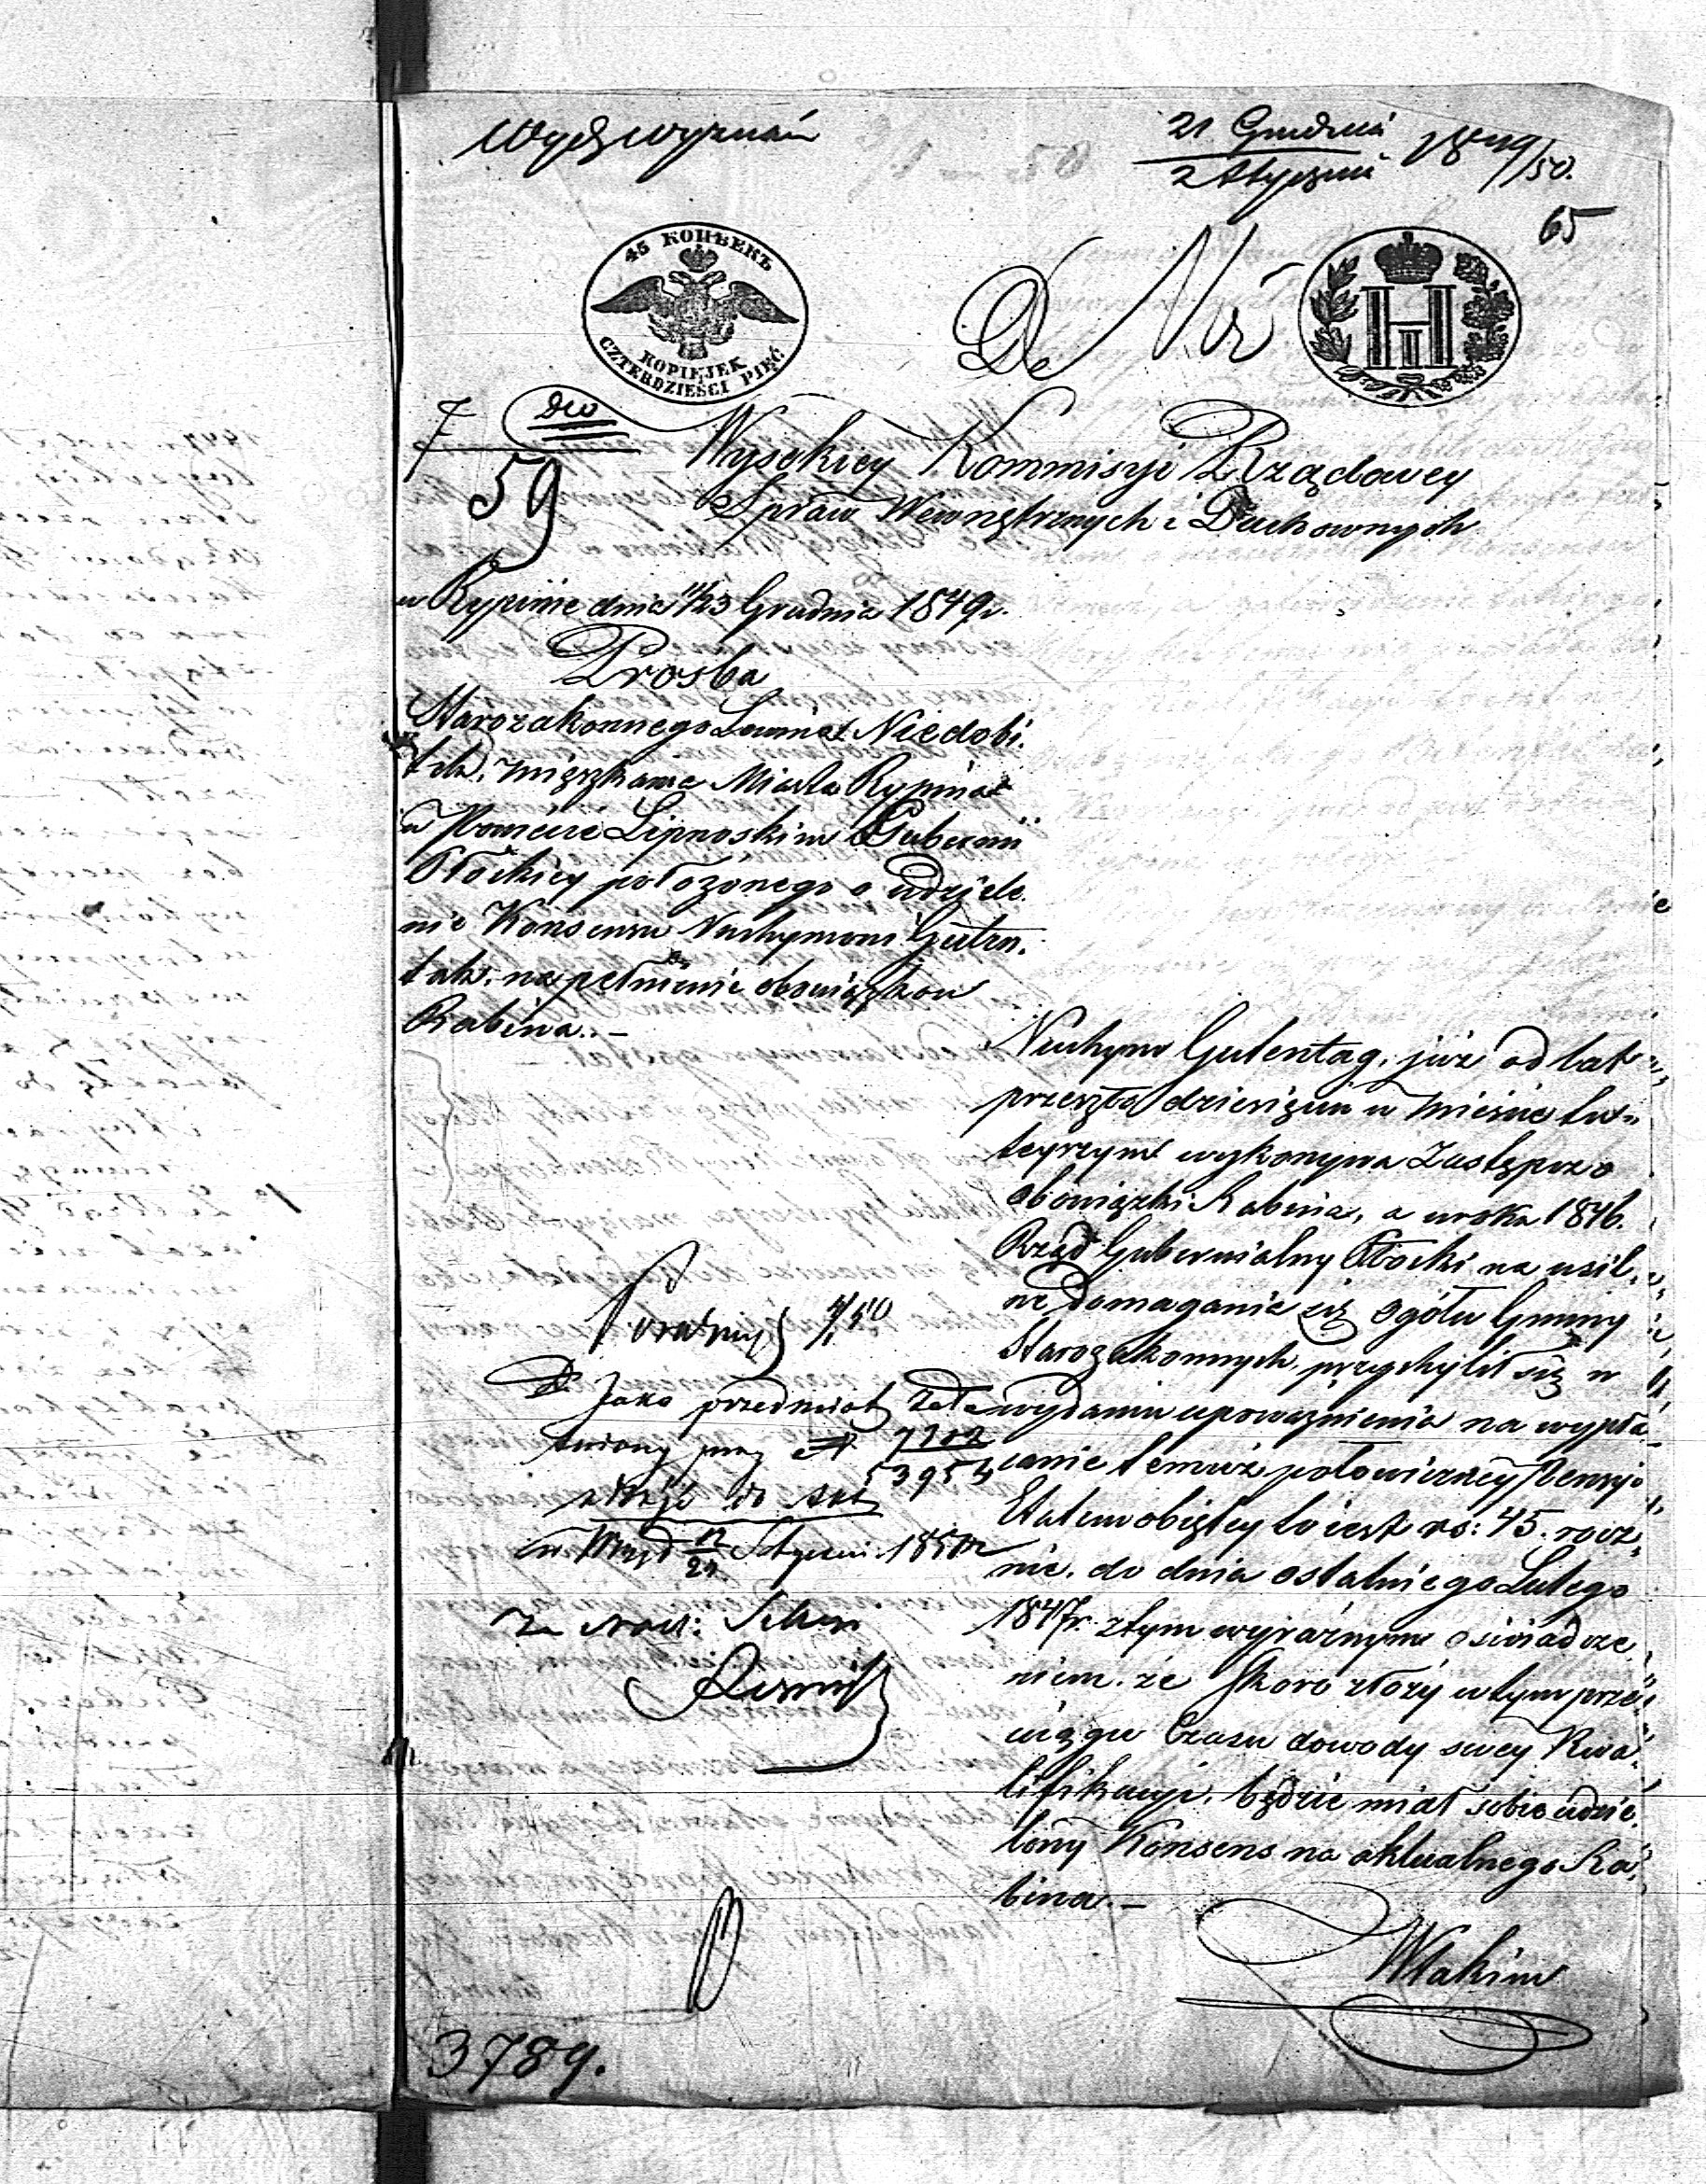 Wydz. wyznań
21 Grudnia
2 Stycznia 1849/50.
65
45 КОПѢЕКЪ
KOPIEJEK
CZTERDZIEŚCI PIĘĆ
De Nr
59
Wysokiey Kommisyi Rządowey
Spraw Wewnętrznych i Duchownych
w Rypinie dnia 11/23 Grudnia 1849 r.
Prosba
Starozakonnego Niedobi-
tek, mięszkańca Miasta Rypina
w Powiecie Lipnoskim Gubernii
Płockiey położonego o udziele-
nie Konsensu Nuchymowi Guten-
tak, na pełnienie obowiązkow
Rabina.—
Nuchym Gutentag, już od lat
przeszło dziesięciu w mieście tu-
teyszym wykonywa Zastępczo
obowiązki Rabina, a w roku 1846.
Rząd Gubernialny Płocki na usil-
ne domaganie się ogółu Gminy
Starozakonnych, przychylił się w
wydaniu upoważnienia na wypła-
canie temuż połowiczney Pensyi
Etatem obiętey to iest rs: 45. rocz-
nie, do dnia ostatniego Lutego
1847 r. z tym wyraźnym oświadcze-
niem, że skoro złoży w tym prze-
ciągu Czasu dowody swey Kwa-
lifikacyi, będzie miał sobie udzie-
lony Konsens na aktualnego Ra-
bina.—
Jako przedmiot zała-
twiony przy N. 7102
53954
złożyć do akt
w Warsz. 12/24 Stycznia 1850 r
Za Nacz: Sekcyi
3789.